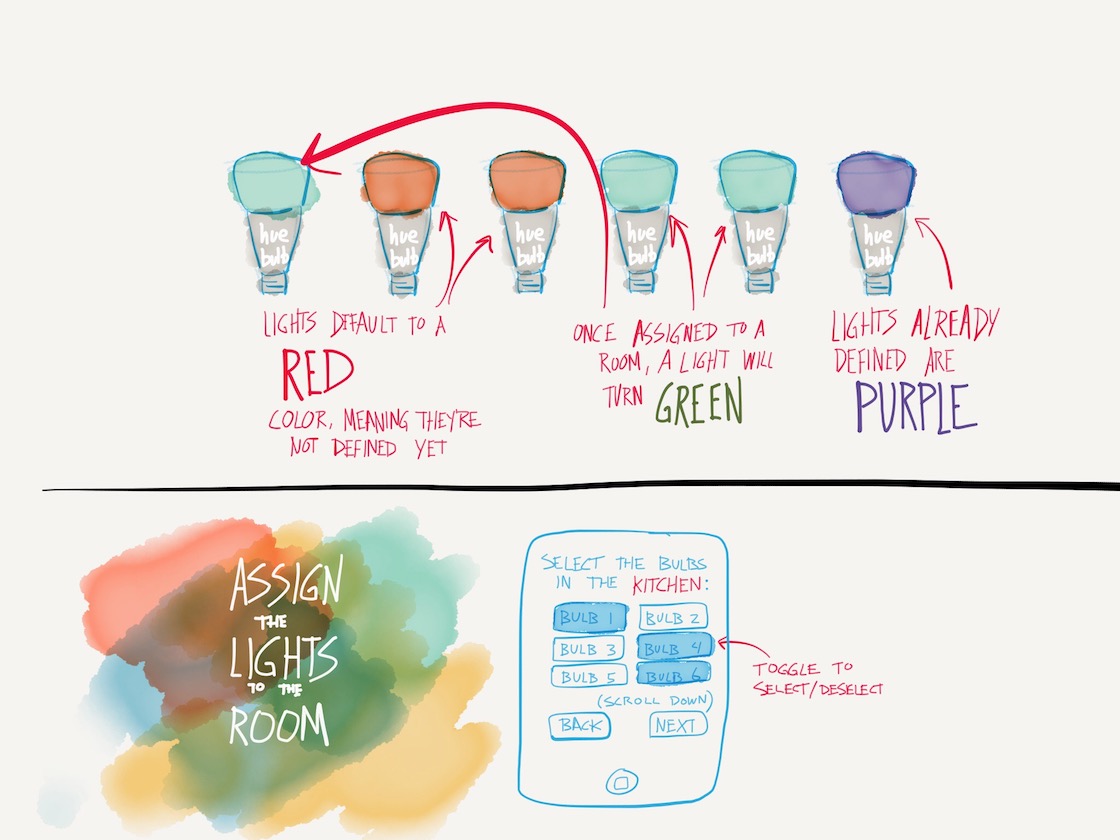 hue
bulb
hue
bulb
hue
bulb
hue
bulb
hue
bulb
hue
bulb
LIGHTS DIFAULT TO A
RED
COLOR, MEANING THEY'RE
NOT DEFINED YET
ONCE ASSIGNED TO A
ROOM, A LIGHT WILL
TURN GREEN
LIGHTS ALREADY
DEFINED ARE
PURPLE
ASSIGN
THE
LIGHTS
TO THE
ROOM
SELECT THE BULBS
IN THE KITCHEN:
BULB 1 BULB 2
BULB 3 BULB 4
BULB 5 BULB 6
(SCROLL DOWN)
BACK NEXT
TOGGLE TO
SELECT/DESELECT